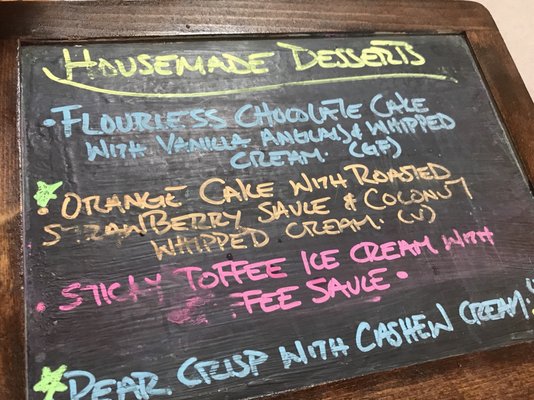 HOUSEMADE DESSERTS
• FLOURLESS CHOCOLATE CAKE
WITH VANILLA ANGLAIS & WHIPPED
CREAM. (GF)
• ORANGE CAKE WITH ROASTED
STRAWBERRY SAUCE & COCONUT
WHIPPED CREAM. (V)
• STICKY TOFFEE ICE CREAM WITH
FEE SAUCE •
PEAR CRISP WITH CASHEW CREAM.